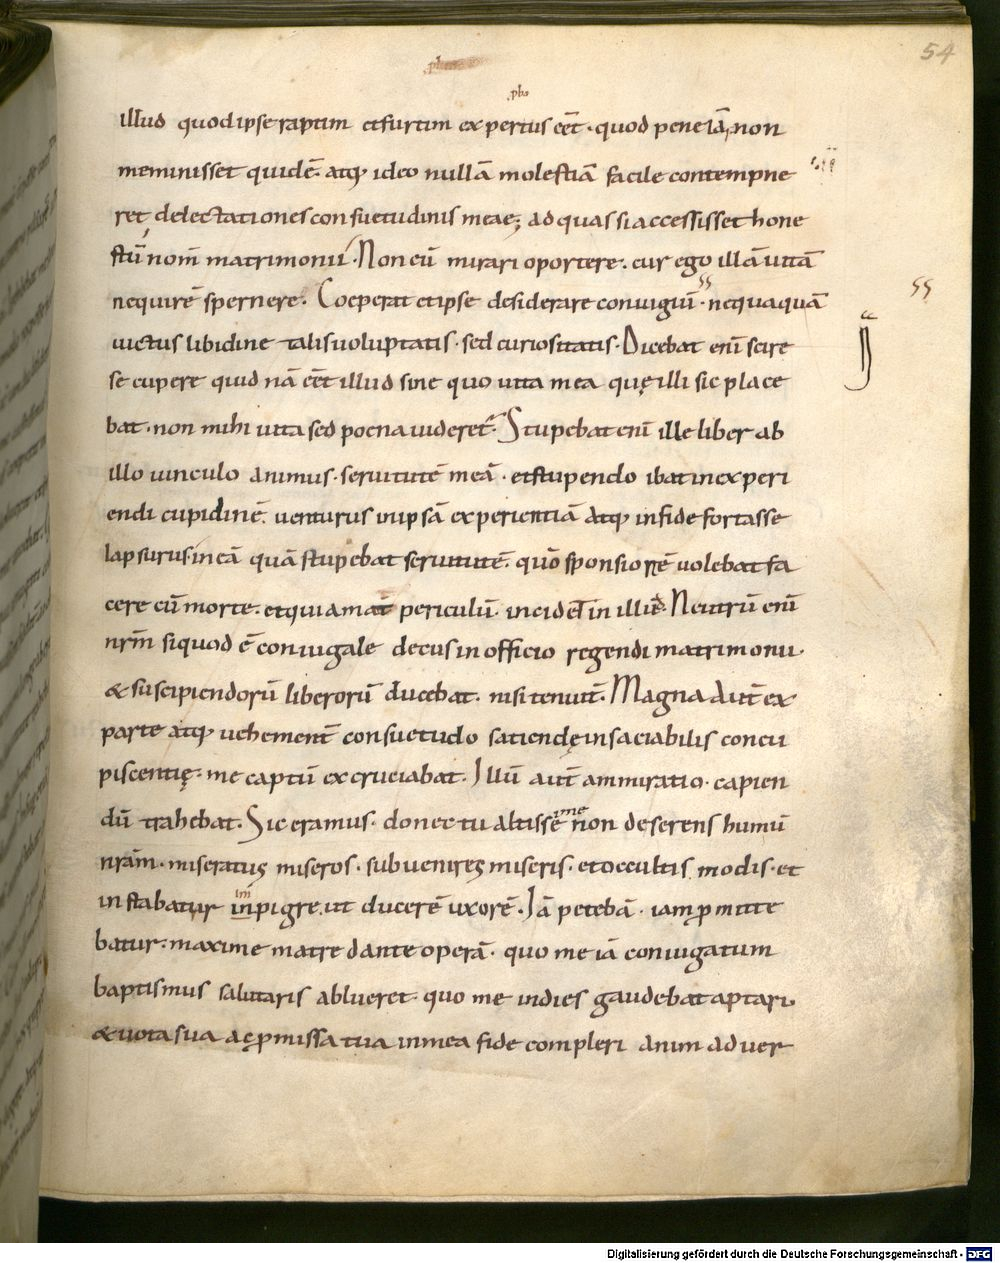 54
illud quod ipse raptim et furtim expertus eēt · quod pene iā non
meminisset quidē · atq; ideo nullā molestiā facile contempne
ret delectationes consuetudinis meae; ad quas si accessisset hone
stū nom̄ matrimonii · Non eū mirari oportere · cur ego illā uitā
nequirē spernere · Coeperat et ipse desiderare coniugiū · nequaquā
uictus libidine talis uoluptatis · sed curiositatis · Dicebat enī scire
se cupere quid nā eēt illud sine quo uita mea quę illi sic place
bat · non mihi uita sed poena uideret᷑ · Stupebat enī ille liber ab
illo uinculo animus · seruitutē meā · et stupendo ibat in experi
endi cupidinē · uenturus in ipsā experientiā atq; inde fortasse
lapsurus · in eā quā stupebat seruitutē · quō sponsionē uolebat fa
cere cū morte · et qui amat periculū · incidet in illud · Neutrū enī
nrm̄ siquod ē coniugale decus in officio regendi matrimonii ·
& suscipiendorū liberorū ducebat · nisi tenuit᷑ · Magna aut̄ ex
parte atq; uehement̄ consuetudo satiendę insaciabilis concu
piscentię · me captū excruciabat · Illū aut̄ ammiratio · capien
dū trahebat · Sic eramus · donec tu altissime non deserens humū
nrām · miseratus miseros · subuenires miseris · et occultis modis · et
instabatur inpigre · ut ducerē uxorē · Iā petebā · iam ꝓmitte
batur · maxime matre dante operā · quo me iā coniugatum
baptismus salutaris ablueret · quo me indies gaudebat aptari ·
& uota sua ac ꝓmissa tua in mea fide compleri animaduer
Digitalisierung gefördert durch die Deutsche Forschungsgemeinschaft - DFG